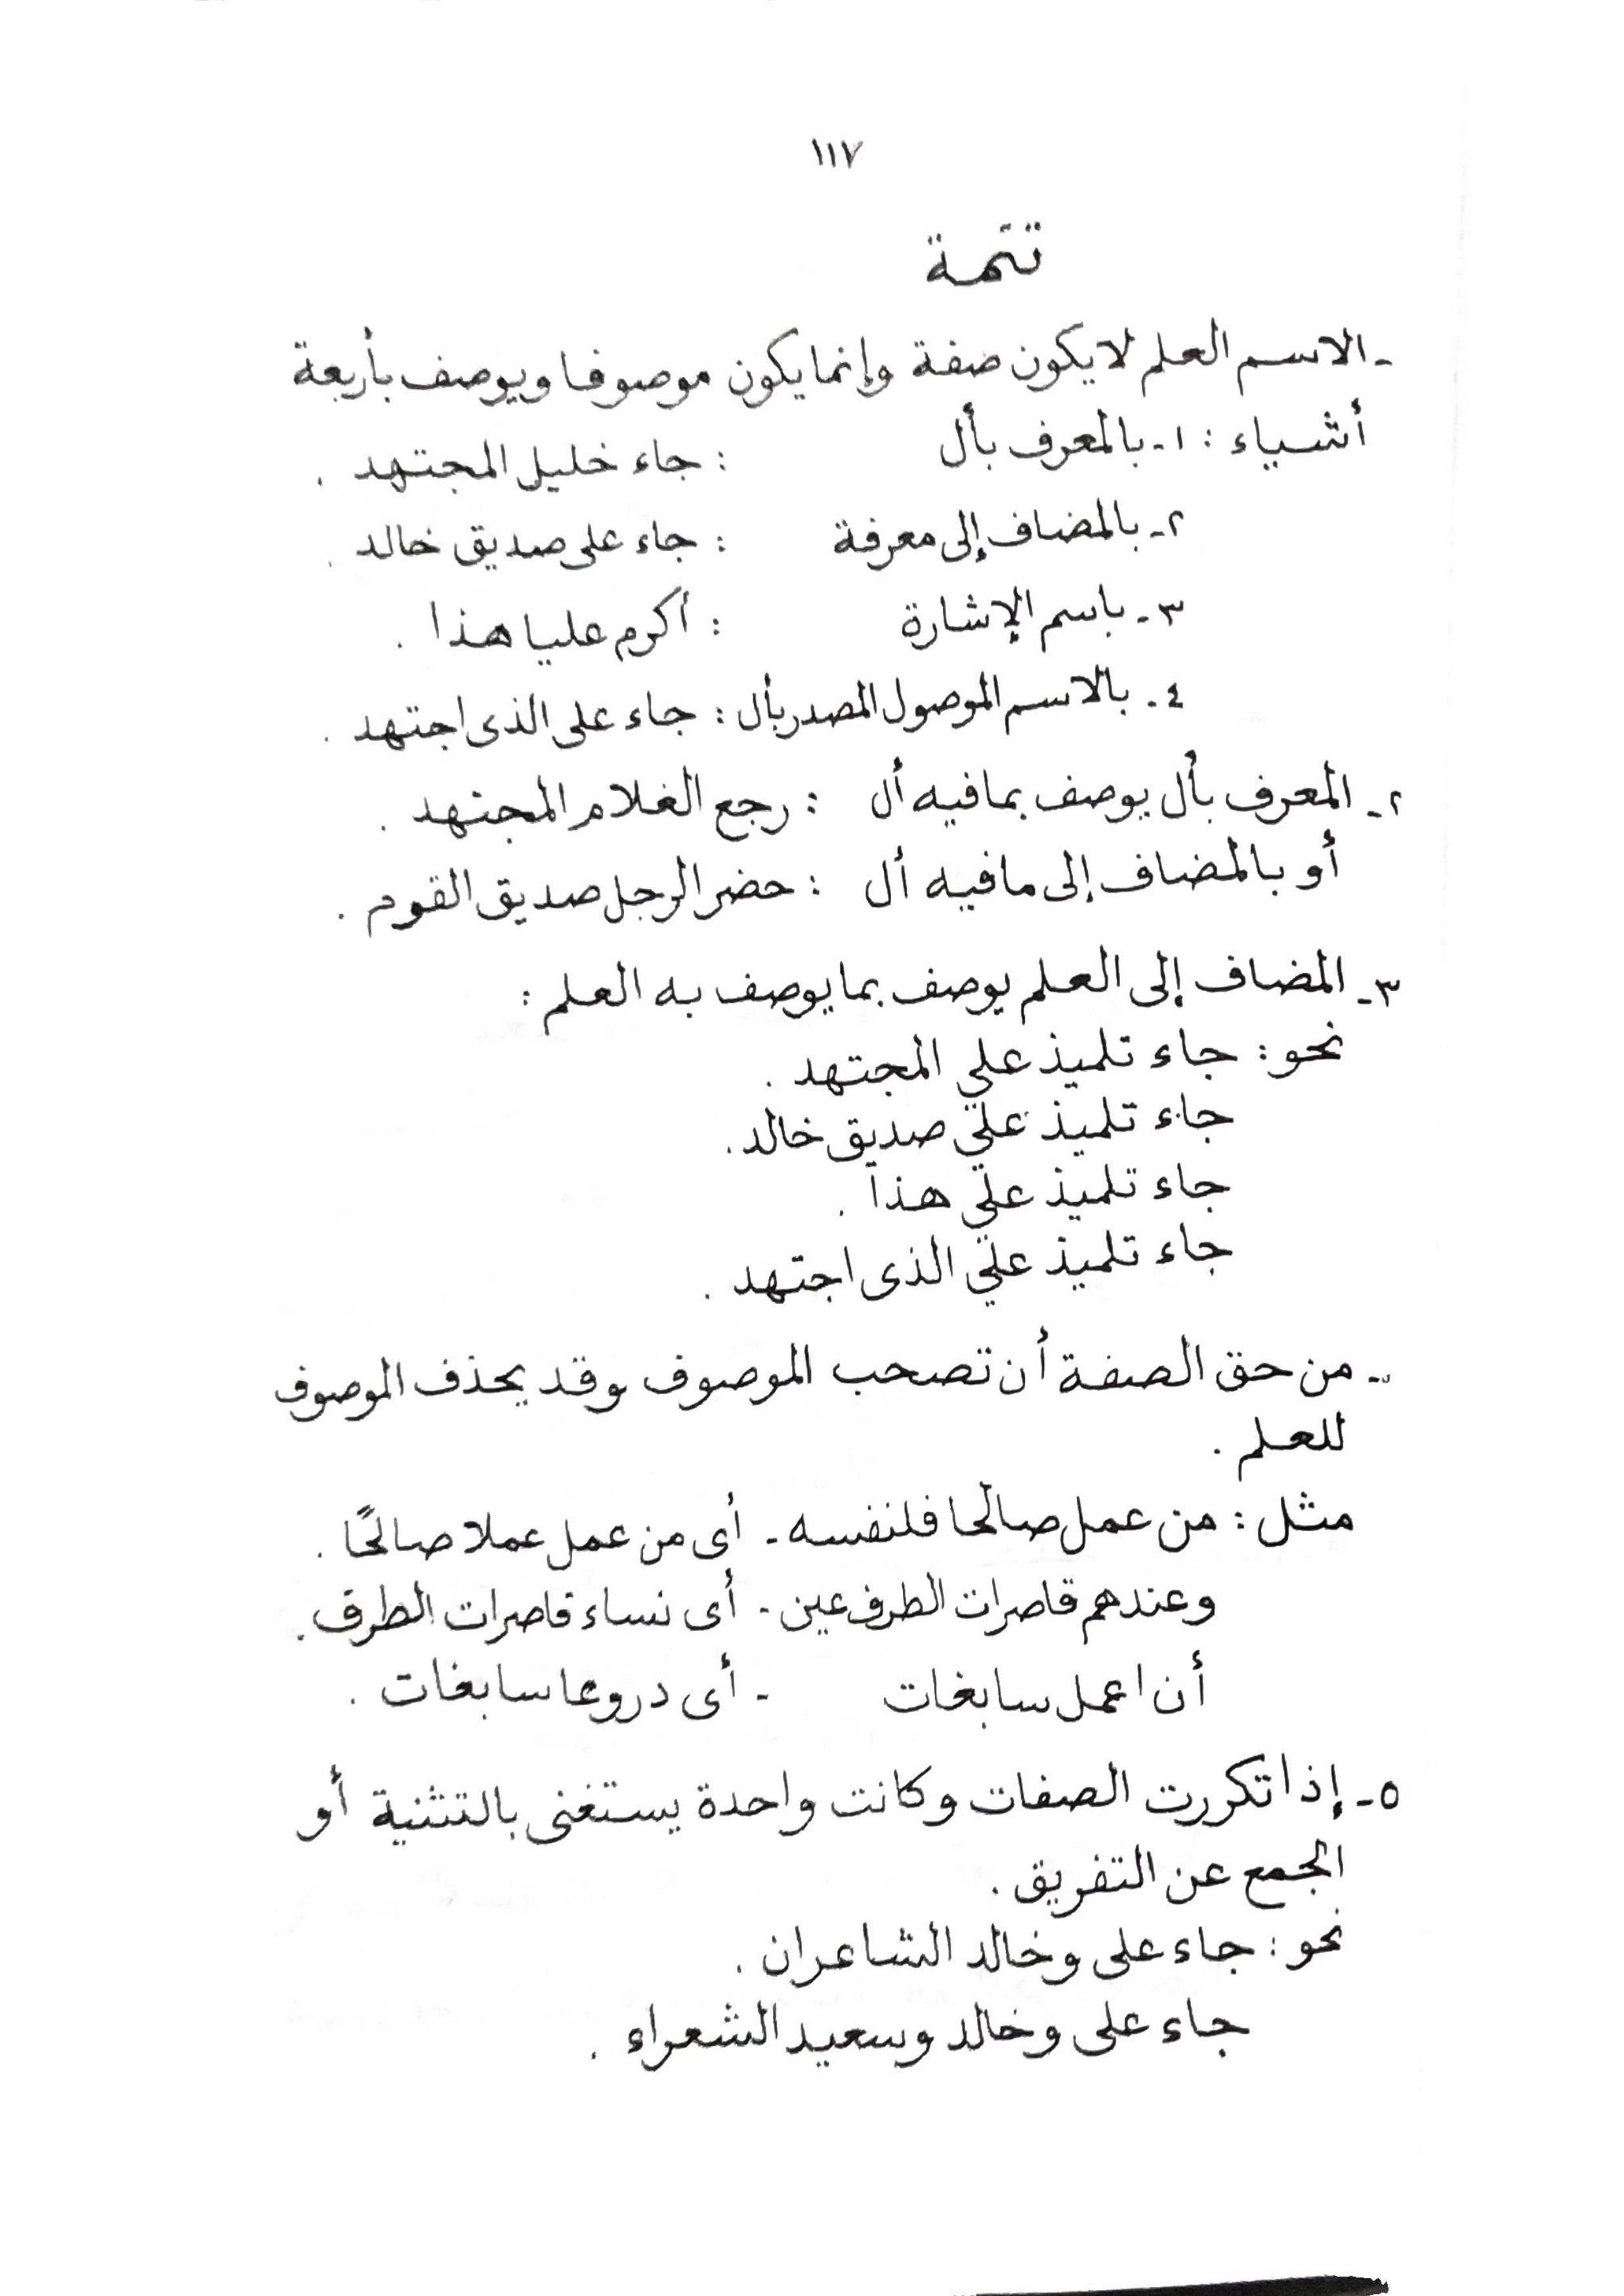 ١١٧
تتمة
- الاسم العلم لا يكون صفة وإنما يكون موصوفا ويوصف بأربعة
أشياء : ١- بالمعرف بأل : جاء خليل المجتهد .
٢- بالمضاف إلى معرفة : جاء على صديق خالد .
٣- باسم الإشارة : أكرم عليا هذا .
٤- بالاسم الموصول المصدر بأل : جاء على الذى اجتهد .
٢- المعرف بأل يوصف بما فيه أل : رجع الغلام المجتهد .
أو بالمضاف إلى ما فيه أل : حضر الرجل صديق القوم .
٣- المضاف إلى العلم يوصف بما يوصف به العلم :
نحو : جاء تلميذ على المجتهد .
جاء تلميذ علي صديق خالد .
جاء تلميذ علي هذا .
جاء تلميذ علي الذى اجتهد .
- من حق الصفة أن تصحب الموصوف وقد يحذف الموصوف
للعلم .
مثل : من عمل صالحا فلنفسه - أى من عمل عملا صالحًا .
وعندهم قاصرات الطرف عين - أى نساء قاصرات الطرف .
أن اعمل سابغات - أى دروعا سابغات .
٥- إذا تكررت الصفات وكانت واحدة يستغنى بالتثنية أو
الجمع عن التفريق .
نحو : جاء على وخالد الشاعران .
جاء على وخالد وسعيد الشعراء .